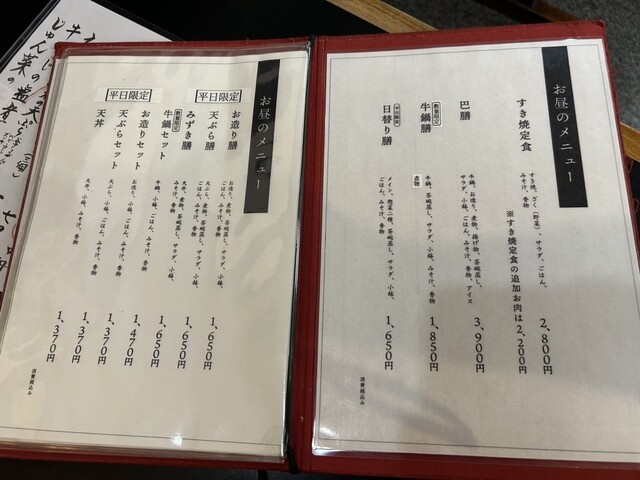 お昼のメニュー
すき焼定食
すき焼、ざく(野菜)、サラダ、ごはん、
みそ汁、香物
2,800円
※すき焼定食の追加お肉は2,200円
巴膳
牛鍋、お造り、煮物、揚げ物、茶碗蒸し、
サラダ、小鉢、ごはん、みそ汁、香物、アイス
3,900円
数量限定
牛鍋膳
牛鍋、茶碗蒸し、サラダ、小鉢、みそ汁、香物
煮物
1,850円
平日限定
日替り膳
メイン、惣菜二種、茶碗蒸し、サラダ、小鉢、
ごはん、みそ汁、香物
1,650円
消費税込み
お昼のメニュー
平日限定
お造り膳
お造り、煮物、茶碗蒸し、サラダ、小鉢、
ごはん、みそ汁、香物
1,650円
天ぷら膳
天ぷら、煮物、茶碗蒸し、サラダ、小鉢、
ごはん、みそ汁、香物
1,650円
みずき膳
天丼、煮物、茶碗蒸し、サラダ、小鉢、
みそ汁、香物
1,650円
数量限定
牛鍋セット
牛鍋、小鉢、ごはん、みそ汁、香物
1,470円
平日限定
お造りセット
お造り、小鉢、ごはん、みそ汁、香物
1,370円
天ぷらセット
天ぷら、小鉢、ごはん、みそ汁、香物
1,370円
天丼
天丼、小鉢、みそ汁、香物
1,370円
消費税込み